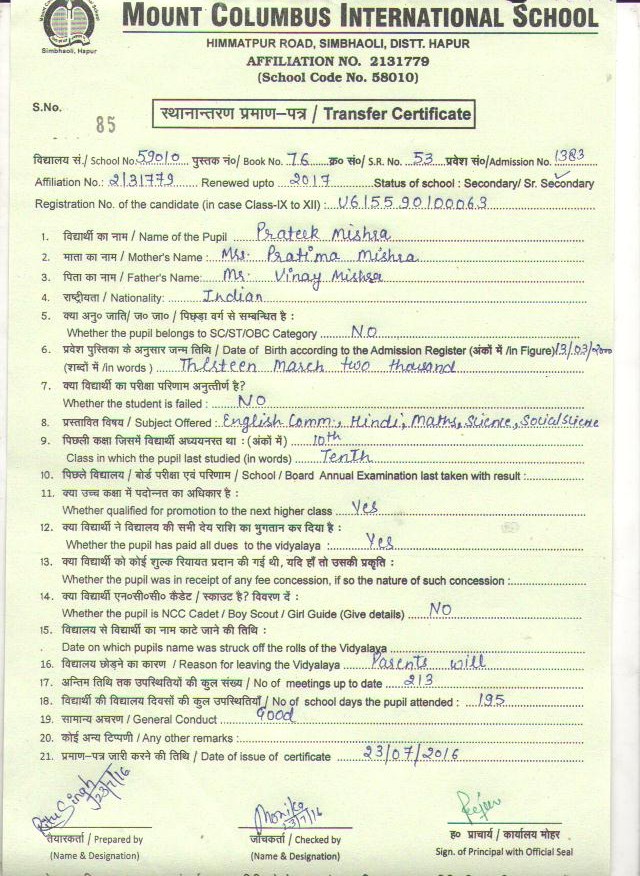 Simbhaoli, Hapur
MOUNT COLUMBUS INTERNATIONAL SCHOOL
HIMMATPUR ROAD, SIMBHAOLI, DISTT. HAPUR
AFFILIATION NO. 2131779
(School Code No. 58010)
S.No. 85
स्थानान्तरण प्रमाण-पत्र / Transfer Certificate
विद्यालय सं./ School No. 59010 पुस्तक नं०/ Book No. 76 क्र० सं०/ S.R. No. 53 प्रवेश सं०/Admission No. 1383
Affiliation No.: 2131779 Renewed upto 2017 Status of school : Secondary/ Sr. Secondary
Registration No. of the candidate (in case Class-IX to XII) : U615590100063
1. विद्यार्थी का नाम / Name of the Pupil Prateek Mishra
2. माता का नाम / Mother's Name : Mrs. Pratima Mishra
3. पिता का नाम / Father's Name: Mr. Vinay Mishra
4. राष्ट्रीयता / Nationality: Indian
5. क्या अनु० जाति/ ज० जा० / पिछड़ा वर्ग से सम्बन्धित है :
Whether the pupil belongs to SC/ST/OBC Category NO
6. प्रवेश पुस्तिका के अनुसार जन्म तिथि / Date of Birth according to the Admission Register (अंकों में /in Figure) 13/03/2000
(शब्दों में /in words ) Thirteen March two thousand
7. क्या विद्यार्थी का परीक्षा परिणाम अनुत्तीर्ण है?
Whether the student is failed : NO
8. प्रस्तावित विषय / Subject Offered : English Comm., Hindi, Maths, Science, Social Science
9. पिछली कक्षा जिसमें विद्यार्थी अध्ययनरत था : (अंकों में ) 10th
Class in which the pupil last studied (in words) Tenth
10. पिछले विद्यालय / बोर्ड परीक्षा एवं परिणाम / School / Board Annual Examination last taken with result :
11. क्या उच्च कक्षा में पदोन्नत का अधिकार है :
Whether qualified for promotion to the next higher class Yes
12. क्या विद्यार्थी ने विद्यालय की सभी देय राशि का भुगतान कर दिया है :
Whether the pupil has paid all dues to the vidyalaya : Yes
13. क्या विद्यार्थी को कोई शुल्क रियायत प्रदान की गई थी, यदि हाँ तो उसकी प्रकृति :
Whether the pupil was in receipt of any fee concession, if so the nature of such concession :
14. क्या विद्यार्थी एन०सी०सी० कैडेट / स्काउट है? विवरण दें :
Whether the pupil is NCC Cadet / Boy Scout / Girl Guide (Give details) NO
15. विद्यालय से विद्यार्थी का नाम काटे जाने की तिथि :
Date on which pupils name was struck off the rolls of the Vidyalaya
16. विद्यालय छोड़ने का कारण / Reason for leaving the Vidyalaya Parents will
17. अन्तिम तिथि तक उपस्थितियों की कुल संख्या / No of meetings up to date 213
18. विद्यार्थी की विद्यालय दिवसों की कुल उपस्थितियाँ / No of school days the pupil attended : 195
19. सामान्य अचरण / General Conduct Good
20. कोई अन्य टिप्पणी / Any other remarks :
21. प्रमाण-पत्र जारी करने की तिथि / Date of issue of certificate 23/07/2016
Ritu Singh 23/7/16
Monika 23/7/16
तैयारकर्ता / Prepared by
(Name & Designation)
जाँचकर्ता / Checked by
(Name & Designation)
ह० प्राचार्य / कार्यालय मोहर
Sign. of Principal with Official Seal